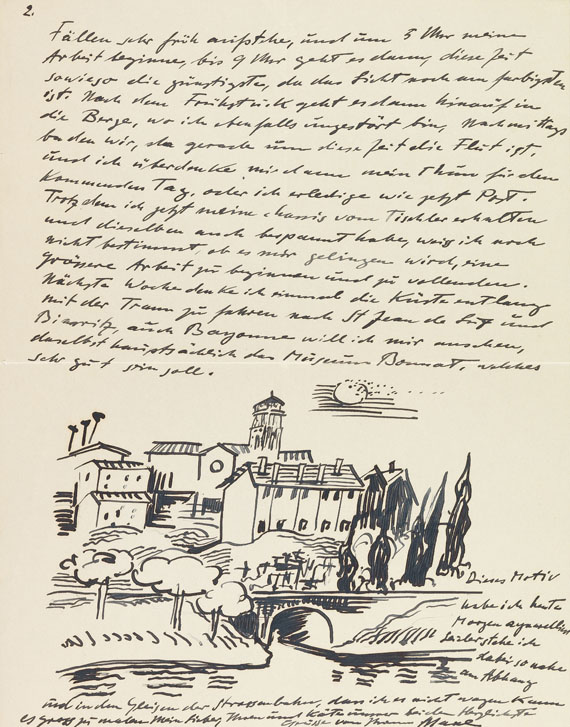 2.
Fällen sehr früh aufstehe, und um 5 Uhr meine
Arbeit beginne, bis 9 Uhr geht es dann, diese Zeit
sowieso die günstigste, da das Licht noch am farbigsten
ist. Nach dem Frühstück geht es dann hinauf in
die Berge, wo ich ebenfalls ungestört bin, Nachmittags
baden wir, da gerade um diese Zeit die Flut ist,
und ich überdenke mir dann mein Thun für den
kommenden Tag, oder ich erledige wie jetzt Post.
Trotzdem ich jetzt meine chassis vom Tischler erhalten
und dieselben auch bespannt habe, weiss ich noch
nicht bestimmt, ob es mir gelingen wird, eine
grössere Arbeit zu beginnen und zu vollenden.
Nächste Woche denke ich einmal die Küste entlang
mit der Tram zu fahren nach St Jean de Luz und
Biarritz, auch Bayonne will ich mir ansehen,
daselbst hauptsächlich das Museum Bonnat, welches
sehr gut sein soll.
Dieses Motiv
habe ich heute
Morgen aquarelliert
leider stehe ich
dabei so nahe
am Abhang
und in den Gleisen der Strassenbahn, dass ich es nicht wagen kann
es gross zu malen. Mein Lieber, Ihnen und Käte immer beiden herzlichste
Grüße von Ihrem